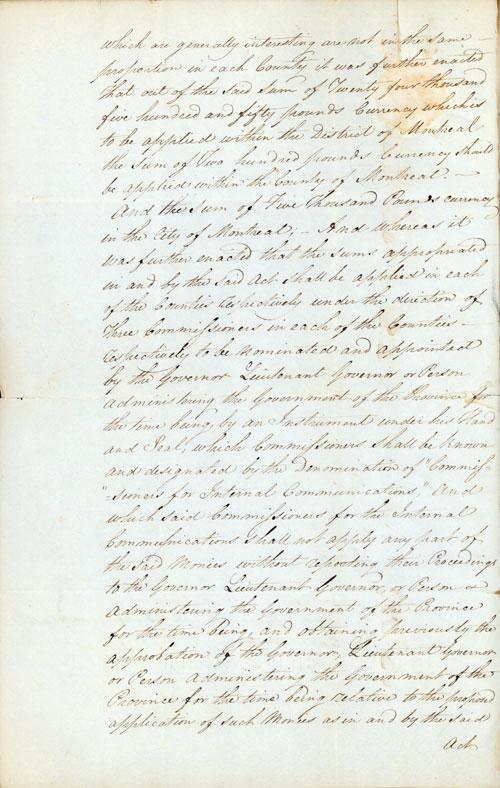 which are generally interesting are not in the same —
proportion in each County it was further enacted
that out of the said Sum of Twenty four thousand
five hundred and fifty pounds Currency which is
to be applied within the District of Montreal
the Sum of Two hundred pounds Currency should
be applied within the County of Montreal. —
And the Sum of Five Thousand Pounds currency
in the City of Montreal; — And whereas it
was further enacted that the sums appropriated
in and by the said Act shall be applied in each
of the Counties respectively under the direction of
Three Commissioners in each of the Counties —
respectively to be nominated and appointed
by the Governor Lieutenant Governor or Person
administering the Government of the Province for
the time being by an Instrument under his Hand
and Seal, which Commissioners shall be known
and designated by the denomination of "Commis-
"-sioners for Internal Communications" And
which said Commissioners for the Internal
Communications shall not apply any part of
the said Monies without reporting their Proceedings
to the Governor Lieutenant Governor, or Person
administering the Government of the Province
for the time being, and obtaining previously the
approbation of the Governor, Lieutenant Governor
or Person administering the Government of the
Province for the time being relative to the proposed
application of such Monies as in and by the said
Act